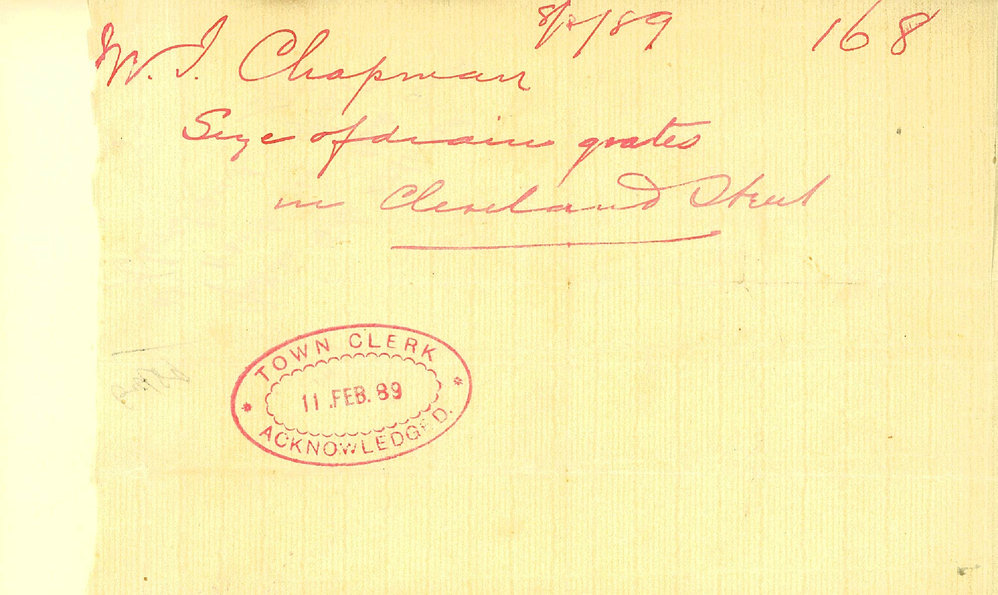 8/2/89 168
W. J. Chapman
Seze of drain grates
in Cleveland Street
TOWN CLERK
11 .FEB. 89
ACKNOWLEDGED.